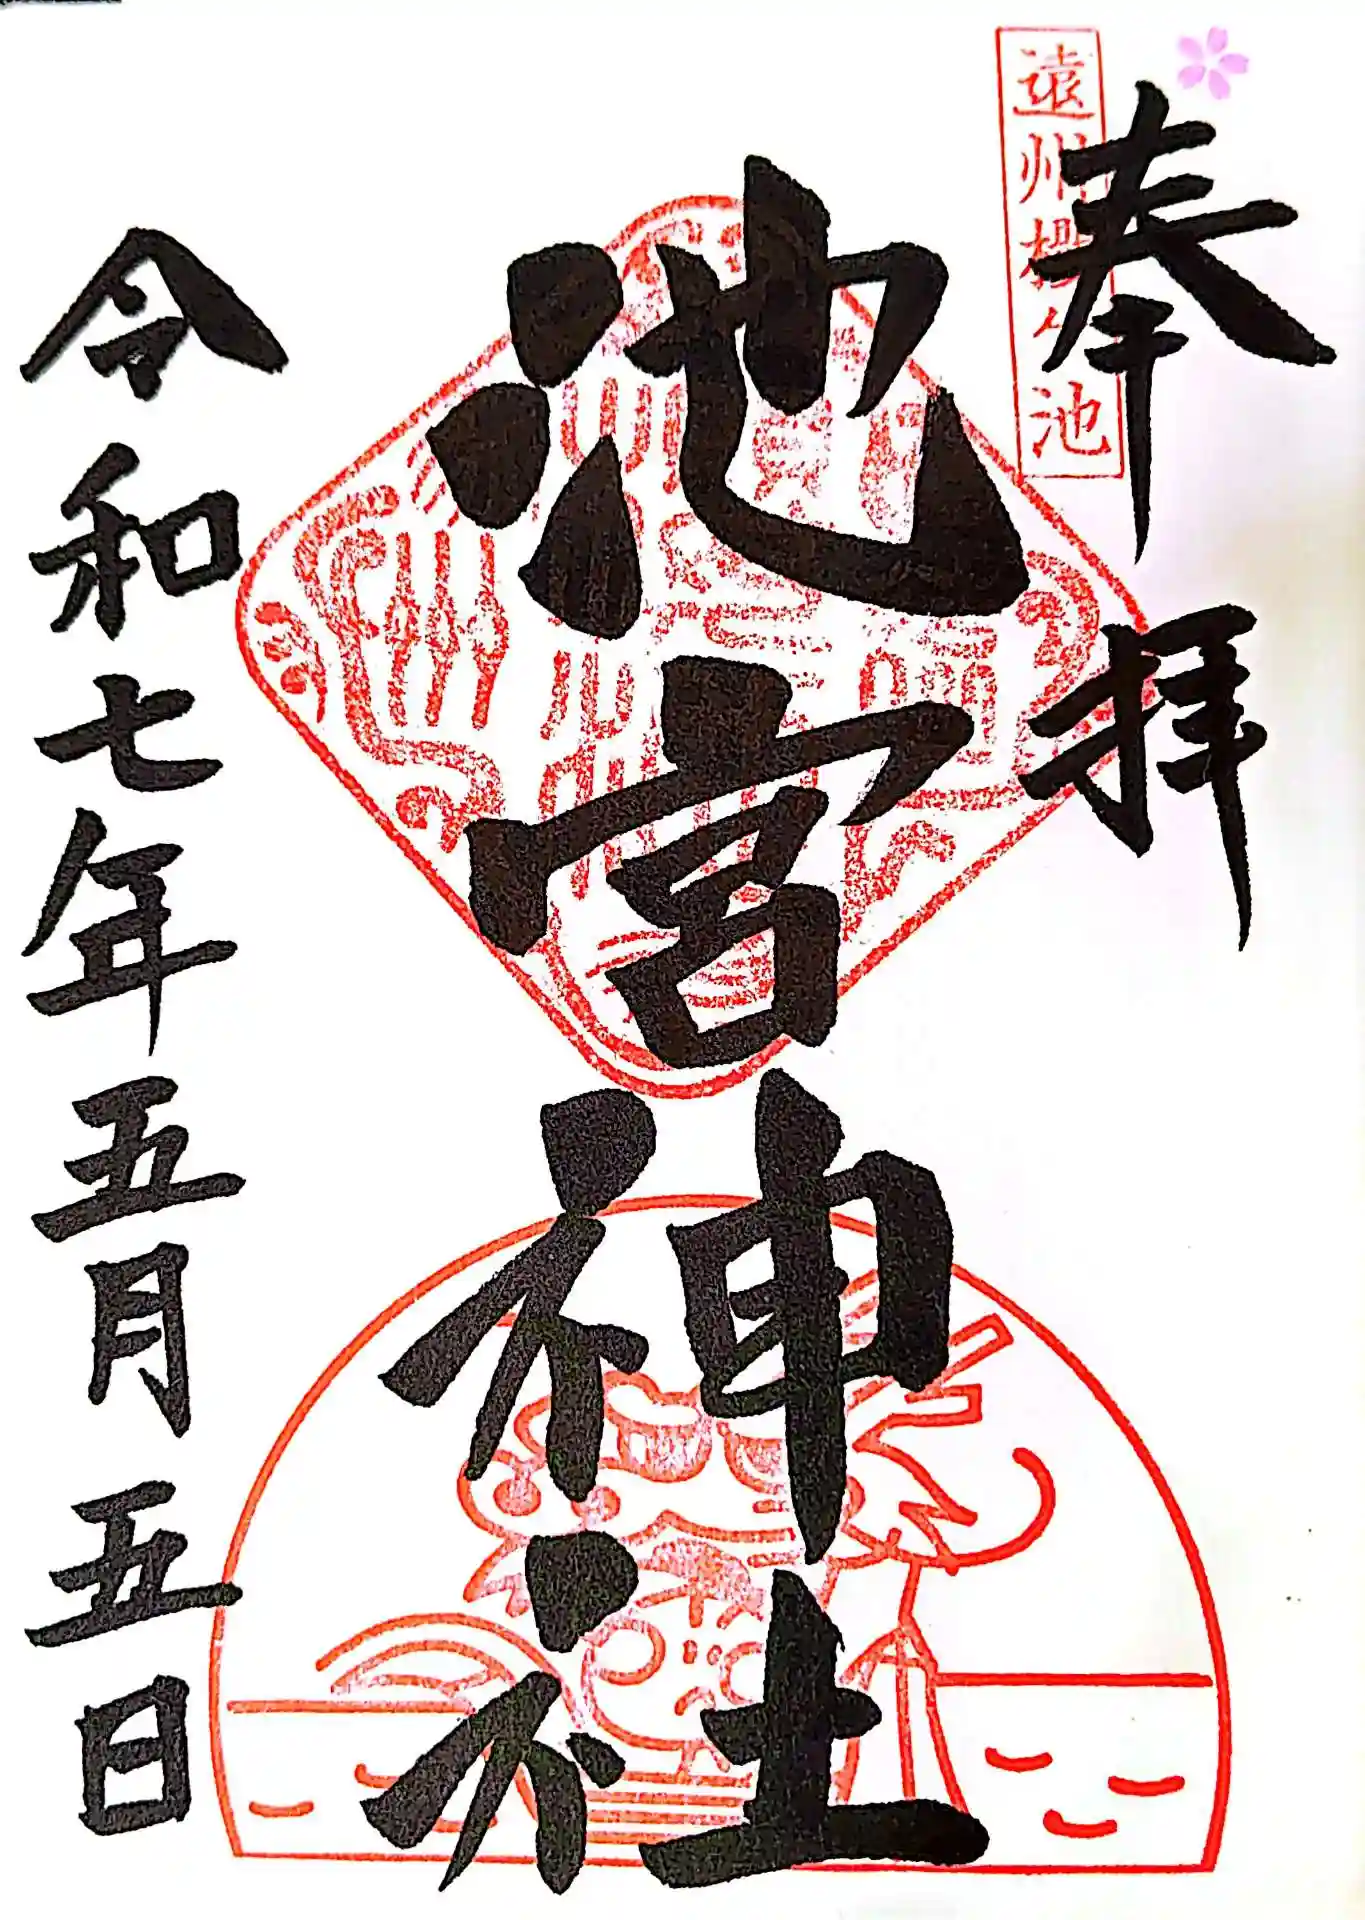 奉拝
遠州櫻ケ池
池宮神社
令和七年五月五日